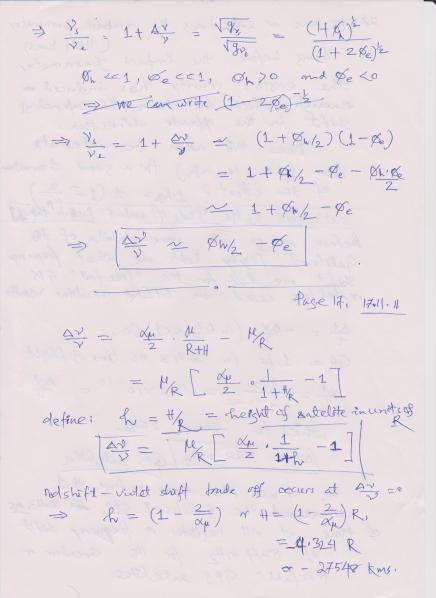 ⇒ ν_s/ν_e = 1 + Δν/ν = √g_νs / √g_νe = (1+ϕ_h)^½ / (1+2ϕ_e)^½
ϕ_h << 1, ϕ_e << 1, ϕ_h > 0 and ϕ_e < 0
⇒ we can write (1 - 2ϕ_e)^-½
⇒ ν_s/ν_e = 1 + Δν/ν ≃ (1 + ϕ_h/2) (1 - ϕ_e)
= 1 + ϕ_h/2 - ϕ_e - ϕ_h·ϕ_e/2
≃ 1 + ϕ_h/2 - ϕ_e
⇒ Δν/ν ~ ϕ_h/2 - ϕ_e
Page 17, 17.11.11
Δν/ν = α_μ/2 · μ/R+H - μ/R
= μ/R [ α_μ/2 · 1/1+H/R - 1 ]
define: h = H/R = height of satelite in units of R
Δν/ν = μ/R [ α_μ/2 · 1/1+h - 1 ]
redshift - violet shaft trade off occurs at Δν/ν = 0
⇒ h = (1 - 2/α_μ) or H = (1 - 2/α_μ) R,
= -4.324 R
≃ - 27548 kms.